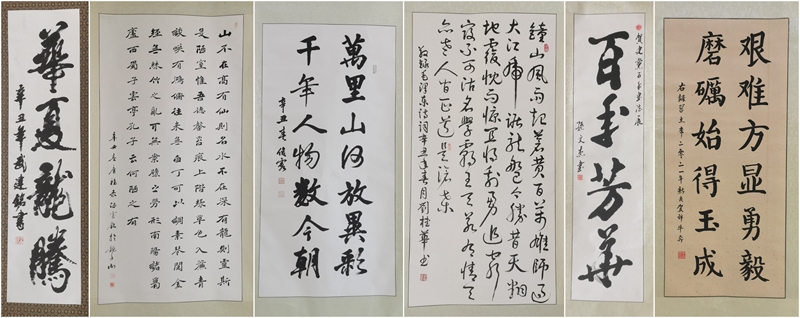 華夏龍騰
辛丑年武建銘書
山不在高有仙則名水不在深有龍則靈斯
是陋室惟吾德馨苔痕上階綠草色入簾青
談笑有鴻儒往來無白丁可以調素琴閱金
經無絲竹之亂耳無案牘之勞形南陽諸葛
廬西蜀子雲亭孔子云何陋之有
萬里山河放異彩
千年人物數今朝
辛丑春
鍾山風雨起蒼黄百萬雄師過
大江虎踞龍盤今勝昔天翻
地覆慨而慷宜将剩勇追窮
寇不可沽名學霸王天若有情天
亦老人间正道是滄桑
敬録毛澤東詩詞辛丑年春月劉桂華书
賀建黨百年書法展
百年芳華
艰难方显勇毅
磨礪始得玉成